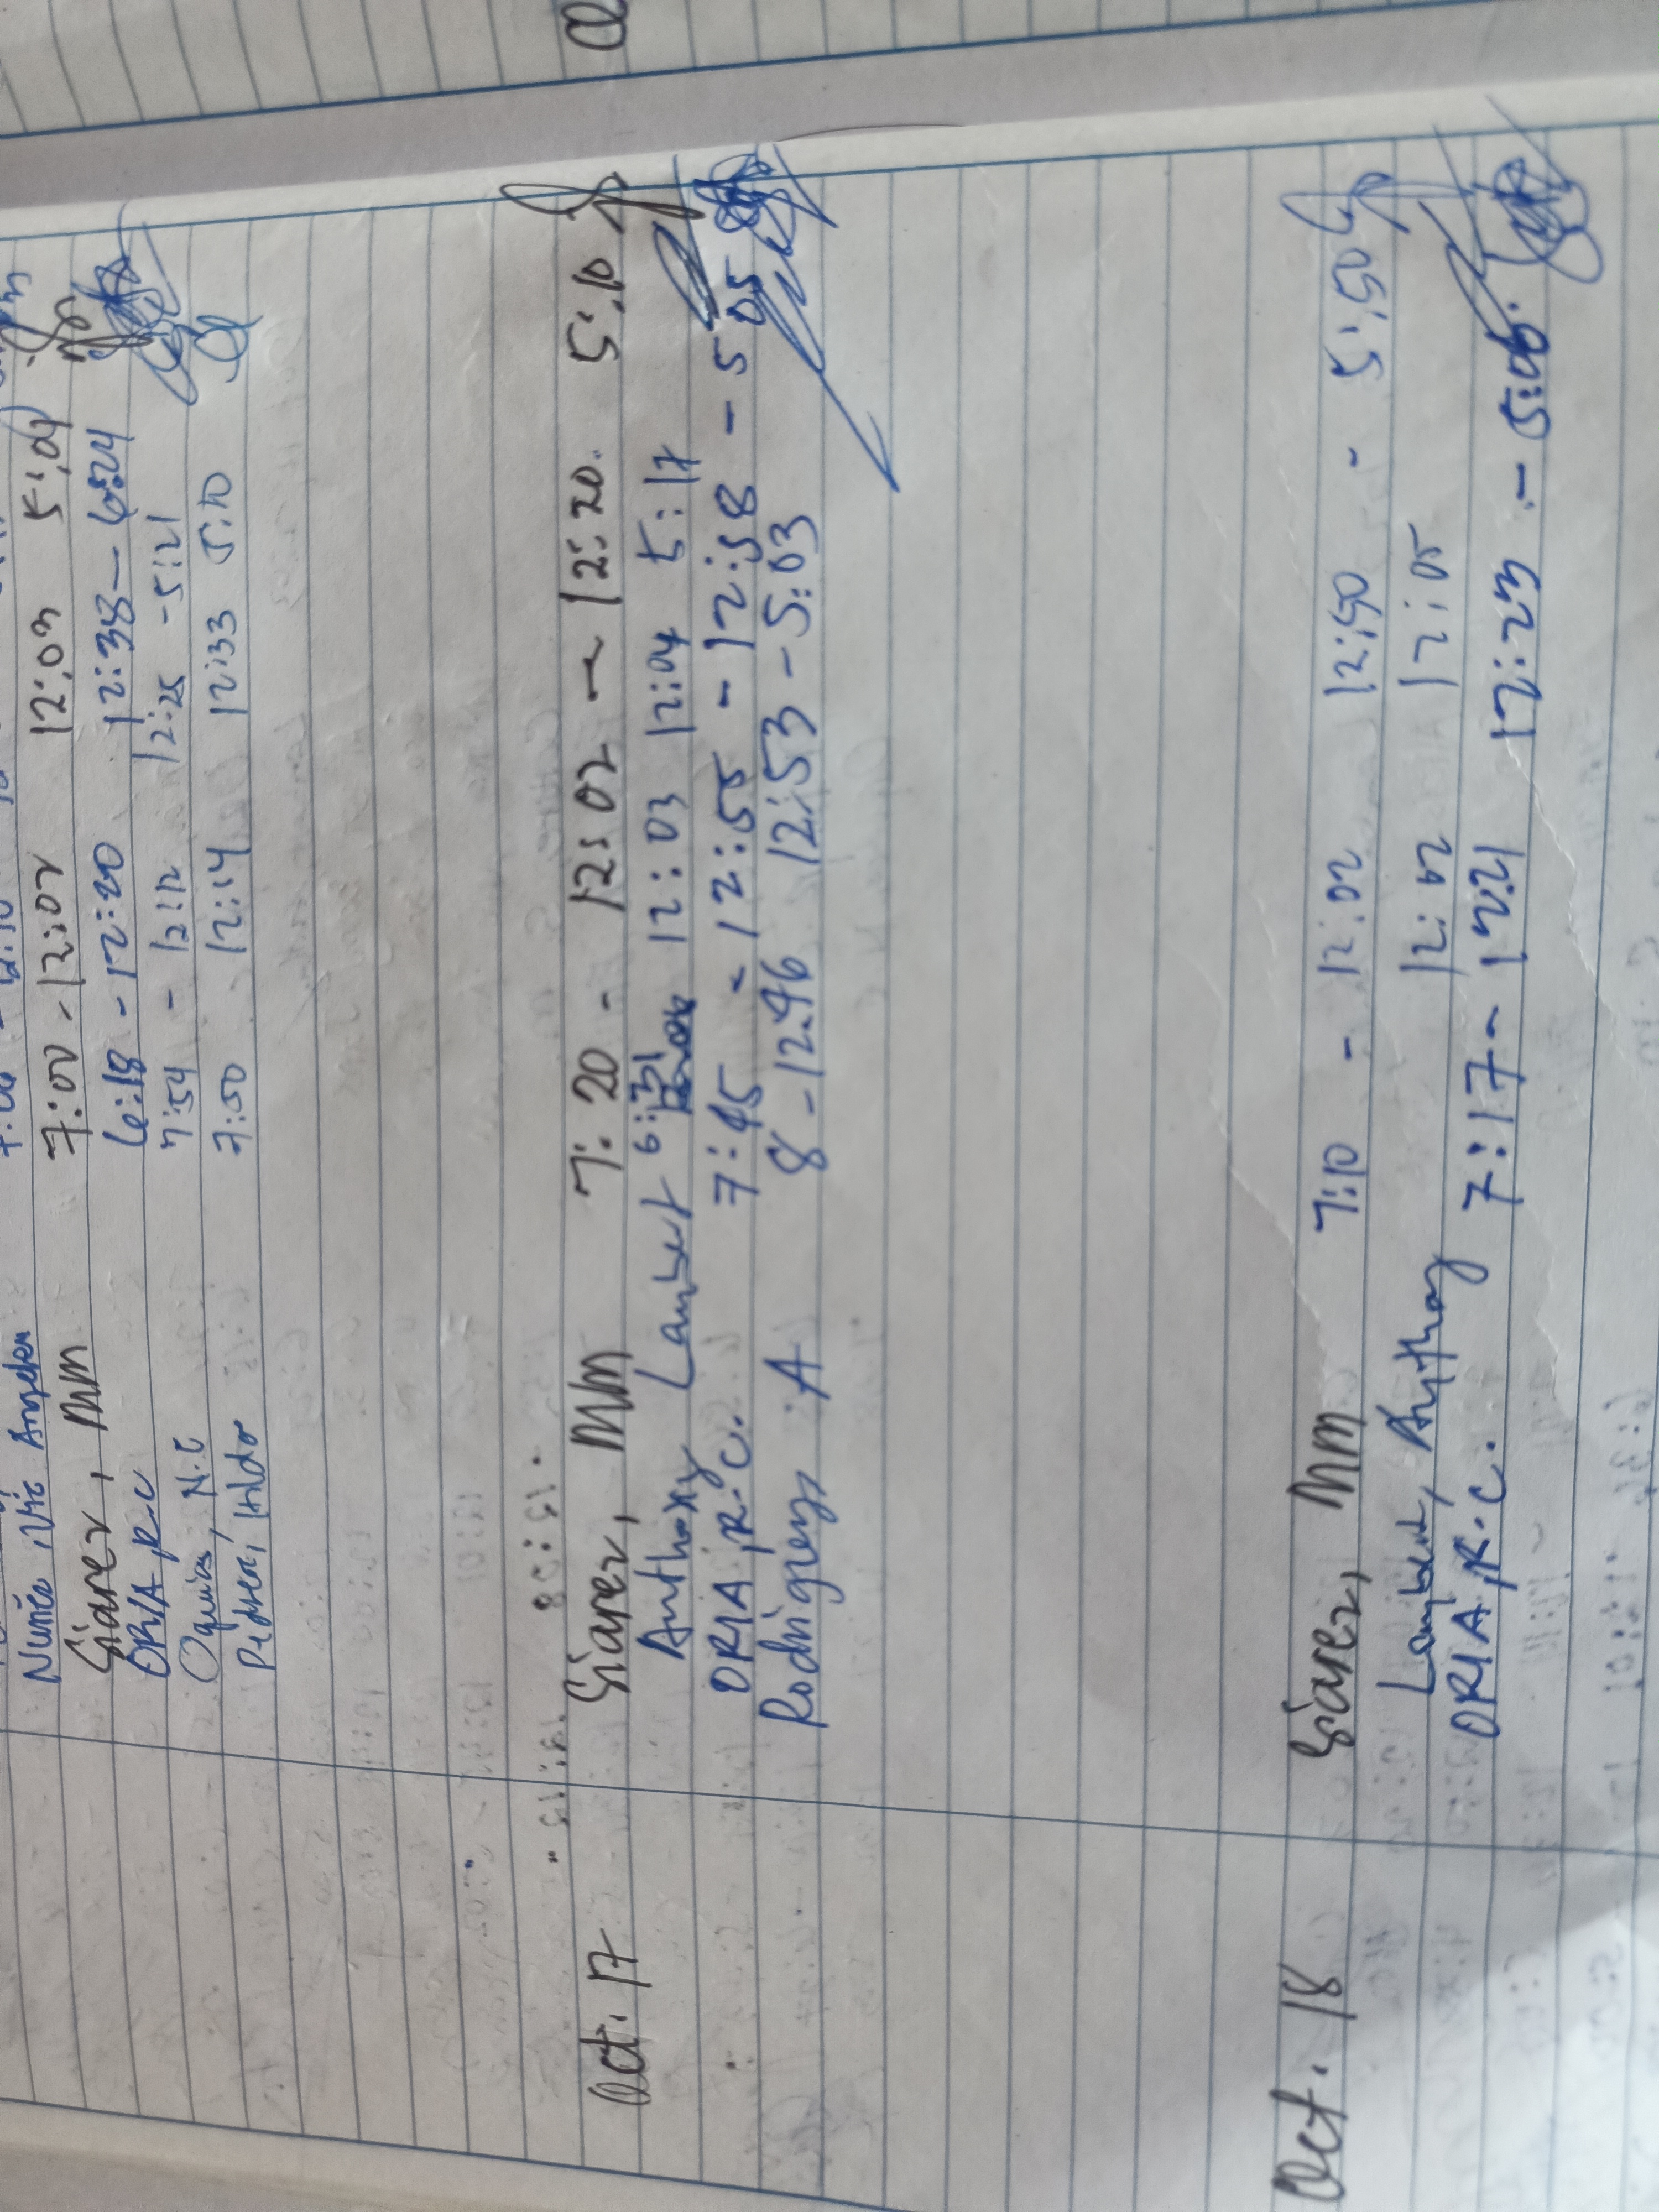 Giarez, MM 7:00 - 12:02 12:03 5:04
ORIA, R.C 6:18 - 12:20 12:38 - 6:24
7:54 - 12:12 12:25 - 5:21
7:50 12:14 12:33 5:10
Oct. 17 Giarez, MM 7:20 - 12:02 - 12:20. 5:10
Anthony Lambert 6:31 12:03 12:04 5:17
ORIA, R.C. 7:45 - 12:55 - 12:58 - 5 05
Rodriguez A 8 - 12:46 12:53 - 5:03
Oct. 18 Giarez, MM 7:10 - 12:02 12:50 - 5:50
Lambert, Anthony 12:02 12:05
ORIA, R.C. 7:17 - 12:21 12:23 - 5:06.